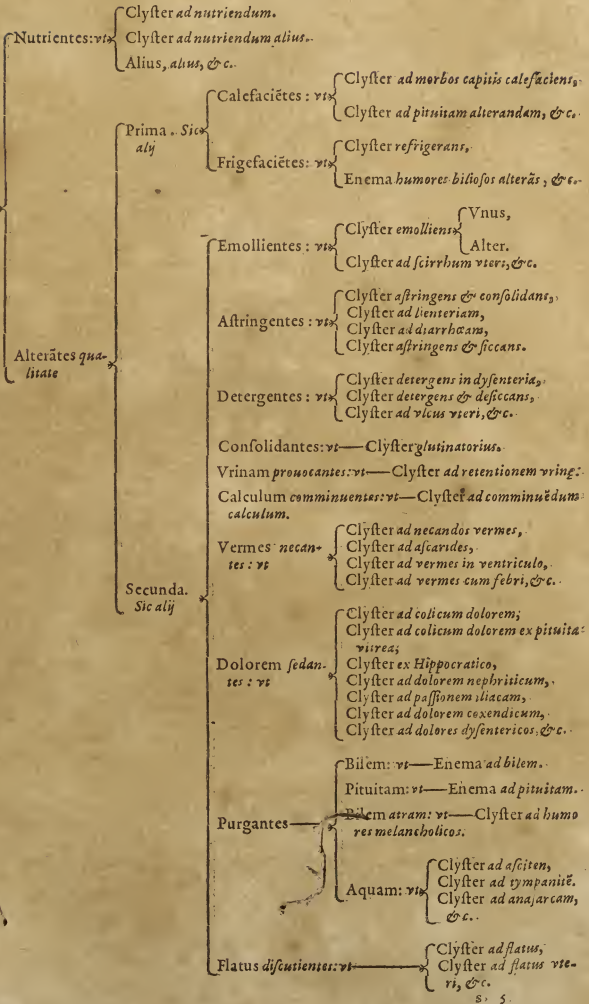 Clyſter ad nutriendum.
Nutrientes: vt
Clyſter ad nutriendum alius.
Alius, alius, &c.
Calefaciētes: vt
Clyſter ad morbos capitis calefaciens,
Clyſter ad pituitam alterandam, &c.
Prima. Sic
alij
Frigefaciētes: vt
Clyſter refrigerans,
Enema humores bilioſos alterās, &c.
Alterātes qua-
litate
Emollientes: vt
Clyſter emolliens
Vnus,
Alter.
Clyſter ad ſcirrhum vteri, &c.
Aſtringentes: vt
Clyſter aſtringens & conſolidans,
Clyſter ad lienteriam,
Clyſter ad diarrhœam,
Clyſter aſtringens & ſiccans.
Detergentes: vt
Clyſter detergens in dyſenteria,
Clyſter detergens & deſiccans,
Clyſter ad vlcus vteri, &c.
Conſolidantes: vt—Clyſter glutinatorius.
Vrinam prouocantes: vt—Clyſter ad retentionem vrinę.
Calculum comminuentes: vt—Clyſter ad comminuēdum
calculum.
Secunda.
Sic alij
Vermes necan-
tes: vt
Clyſter ad necandos vermes,
Clyſter ad aſcarides,
Clyſter ad vermes in ventriculo,
Clyſter ad vermes cum febri, &c.
Dolorem ſedan-
tes: vt
Clyſter ad colicum dolorem;
Clyſter ad colicum dolorem ex pituita
vitrea;
Clyſter ex Hippocratico,
Clyſter ad dolorem nephriticum,
Clyſter ad paſſionem iliacam,
Clyſter ad dolorem coxendicum,
Clyſter ad dolores dyſentericos, &c.
Purgantes
Bilem: vt—Enema ad bilem.
Pituitam: vt—Enema ad pituitam.
Bilem atram: vt—Clyſter ad humo
res melancholicos.
Aquam: vt
Clyſter ad aſciten,
Clyſter ad tympanitē.
Clyſter ad anaſarcam,
&c.
Flatus diſcutientes: vt
Clyſter ad flatus,
Clyſter ad flatus vte-
ri, &c.
S 5